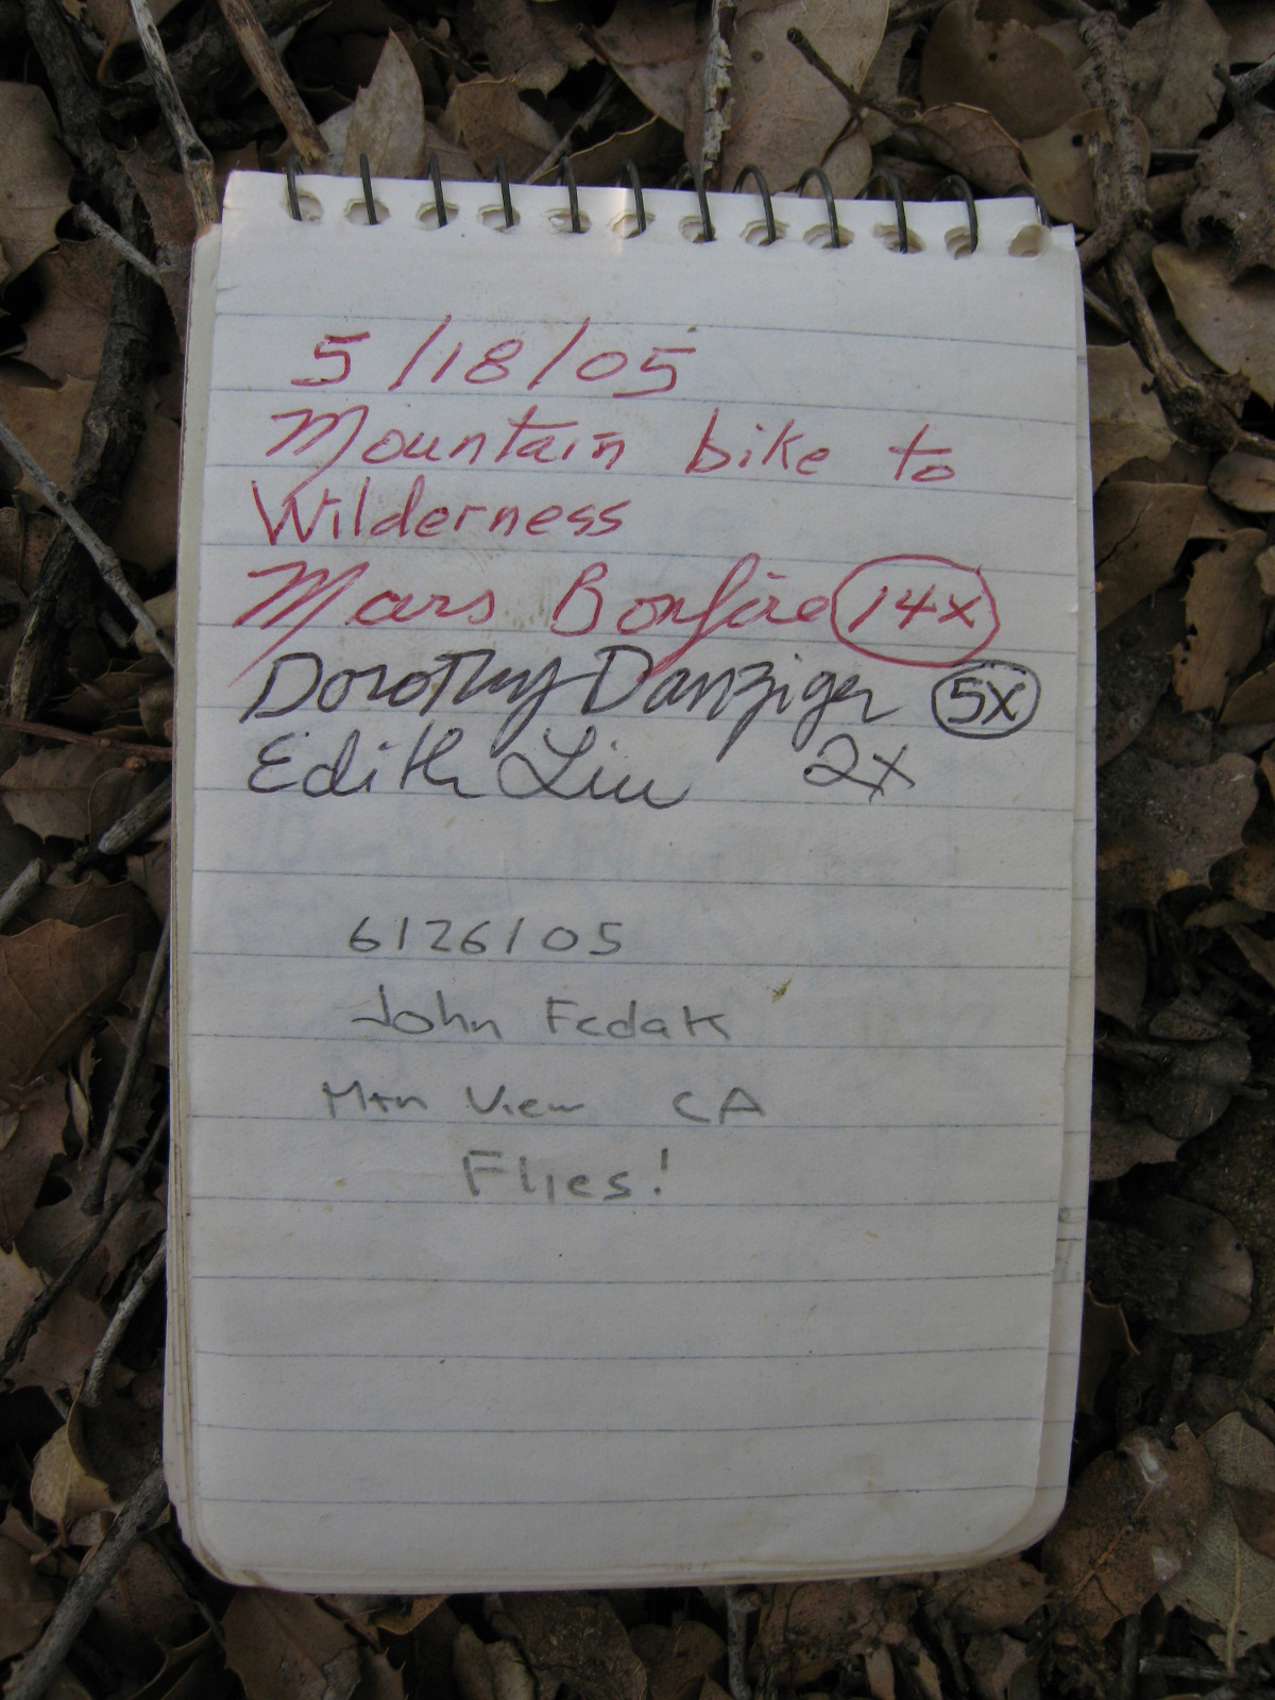 5/18/05
Mountain bike to
Wilderness
Mars Bonfire 14x
Dorothy Danziger 5x
Edith Liu 2x
6/26/05
John Fedak
Mtn View CA
Flies!